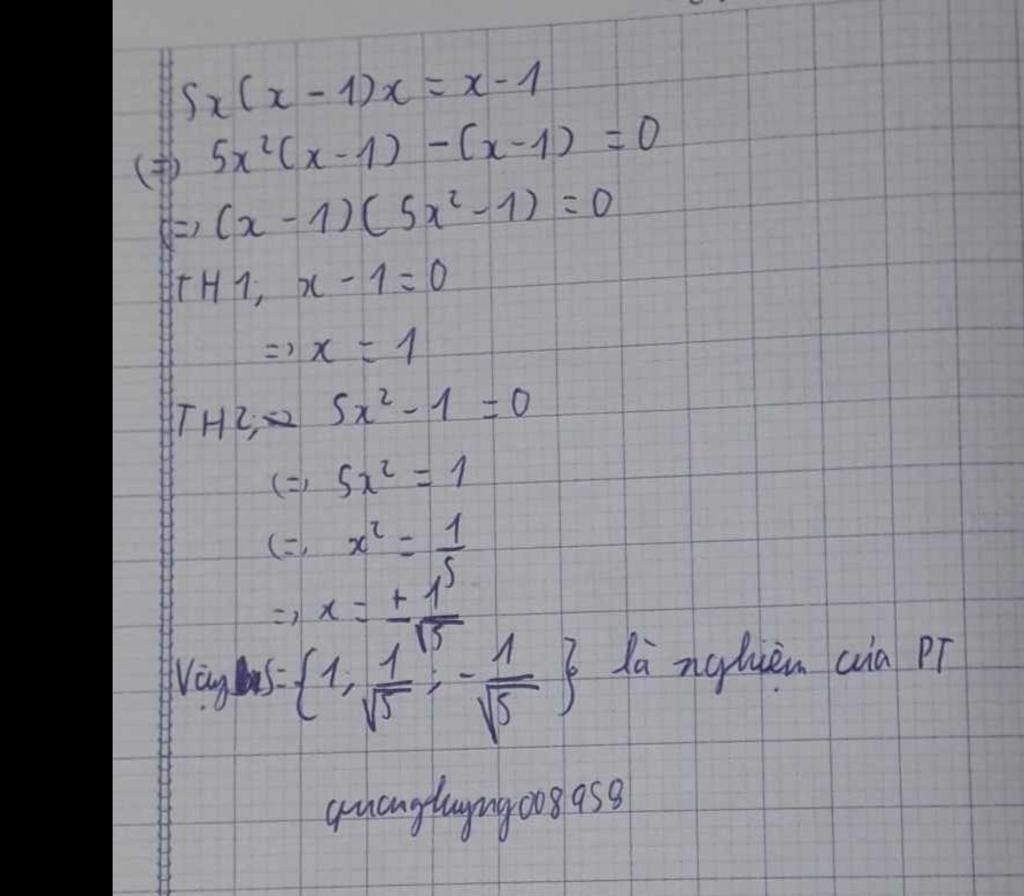 5x(x - 1)x = x - 1
(=) 5x²(x - 1) - (x - 1) = 0
(=) (x - 1)(5x² - 1) = 0
TH1; x - 1 = 0
=) x = 1
TH2; 5x² - 1 = 0
(=) 5x² = 1
(=) x² = 1/5
=) x = ± 1/√5
Vậy S = {1; 1/√5; - 1/√5} là nghiệm của PT